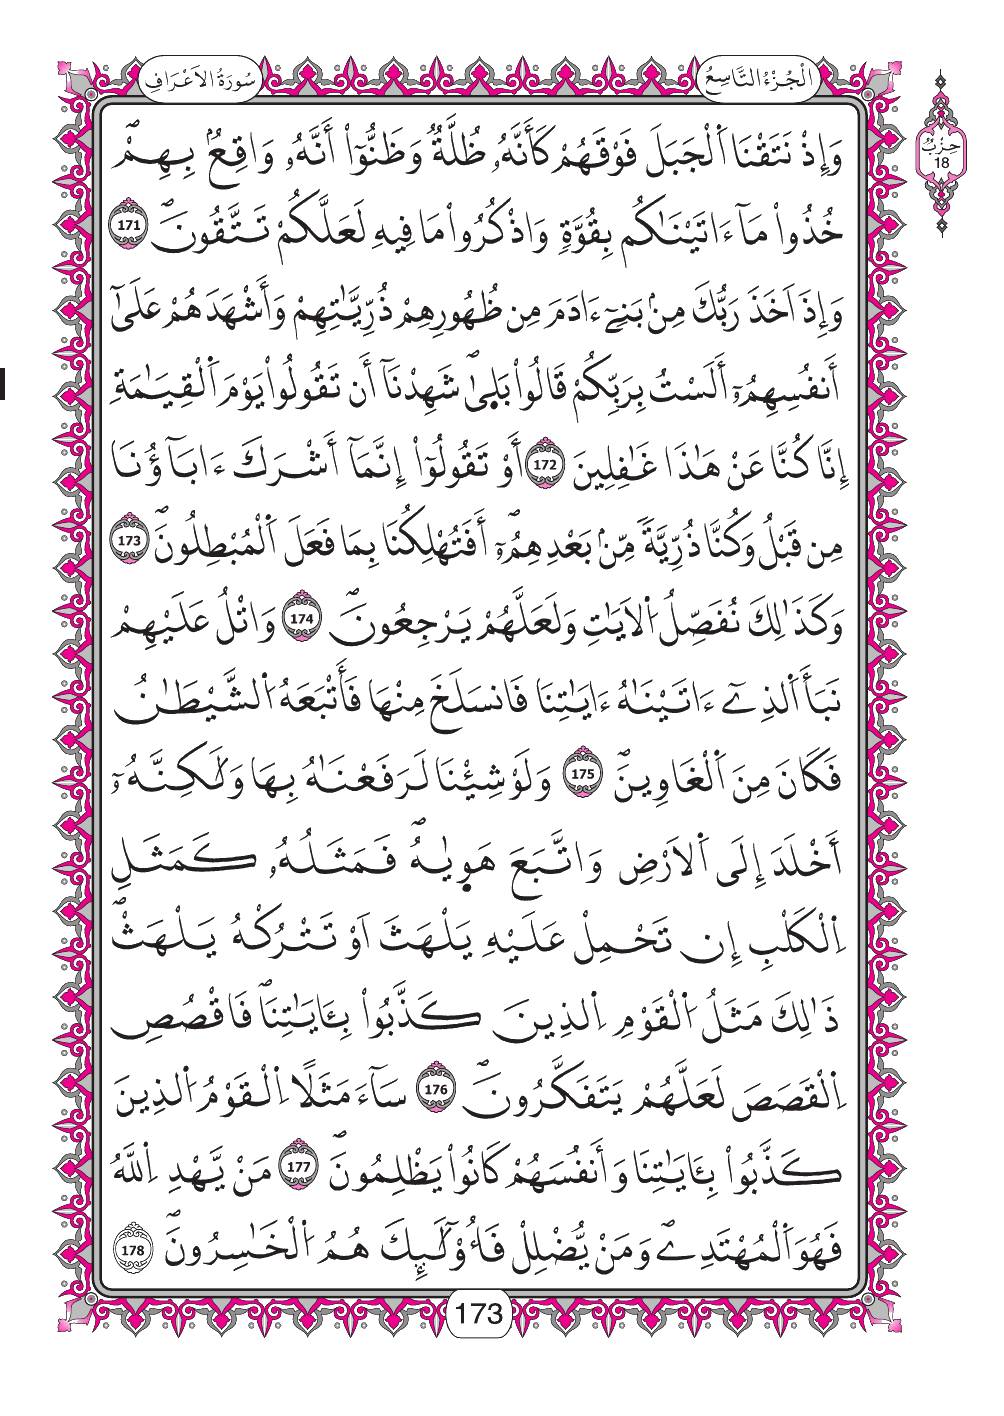 اَ۬لْجُزْءُ التَّاسِعُ
سُورَةُ الَاعْرَافِ
حِزْبٌ
18
وَإِذْ نَتَقْنَا اَ۬لْجَبَلَ فَوْقَهُمْ كَأَنَّهُۥ ظُلَّةٞ وَظَنُّوٓاْ أَنَّهُۥ وَاقِعُۢ بِهِمْۖ
خُذُواْ مَآ ءَاتَيْنَٰكُم بِقُوَّةٖ وَاذْكُرُواْ مَا فِيهِ لَعَلَّكُمْ تَتَّقُونَۖ 171
وَإِذَ اَخَذَ رَبُّكَ مِنۢ بَنِےٓ ءَادَمَ مِن ظُهُورِهِمْ ذُرِّيَّٰتِهِمْ وَأَشْهَدَهُمْ عَلَىٰٓ
أَنفُسِهِمُۥٓ أَلَسْتُ بِرَبِّكُمْ قَالُواْ بَل۪ىٰۖ شَهِدْنَآ أَن تَقُولُواْ يَوْمَ اَ۬لْقِيَٰمَةِ
إِنَّا كُنَّا عَنْ هَٰذَا غَٰفِلِينَ 172 أَوْ تَقُولُوٓاْ إِنَّمَآ أَشْرَكَ ءَابَآؤُنَا
مِن قَبْلُ وَكُنَّا ذُرِّيَّةٗ مِّنۢ بَعْدِهِمُۥٓۖ أَفَتُهْلِكُنَا بِمَا فَعَلَ اَ۬لْمُبْطِلُونَۖ 173
وَكَذَٰلِكَ نُفَصِّلُ اُ۬لَايَٰتِ وَلَعَلَّهُمْ يَرْجِعُونَۖ 174 وَاتْلُ عَلَيْهِمْ
نَبَأَ اَ۬لذِےٓ ءَاتَيْنَٰهُ ءَايَٰتِنَا فَانسَلَخَ مِنْهَا فَأَتْبَعَهُ اُ۬لشَّيْطَٰنُ
فَكَانَ مِنَ اَ۬لْغَاوِينَۖ 175 وَلَوْ شِئْنَا لَرَفَعْنَٰهُ بِهَا وَلَٰكِنَّهُۥٓ
أَخْلَدَ إِلَى اَ۬لَارْضِ وَاتَّبَعَ هَو۪يٰهُۖ فَمَثَلُهُۥ كَمَثَلِ
اِ۬لْكَلْبِ إِن تَحْمِلْ عَلَيْهِ يَلْهَثَ اَوْ تَتْرُكْهُ يَلْهَثْۖ
ذَٰلِكَ مَثَلُ اُ۬لْقَوْمِ اِ۬لذِينَ كَذَّبُواْ بِـَٔايَٰتِنَاۖ فَاقْصُصِ
اِ۬لْقَصَصَ لَعَلَّهُمْ يَتَفَكَّرُونَۖ 176 سَآءَ مَثَلًا اِ۬لْقَوْمُ اُ۬لذِينَ
كَذَّبُواْ بِـَٔايَٰتِنَا وَأَنفُسَهُمْ كَانُواْ يَظْلِمُونَۖ 177 مَنْ يَّهْدِ اِ۬للَّهُ
فَهُوَ اَ۬لْمُهْتَدِےۖ وَمَنْ يُّضْلِلْ فَأُوْلَٰٓئِكَ هُمُ اُ۬لْخَٰسِرُونَۖ 178
173